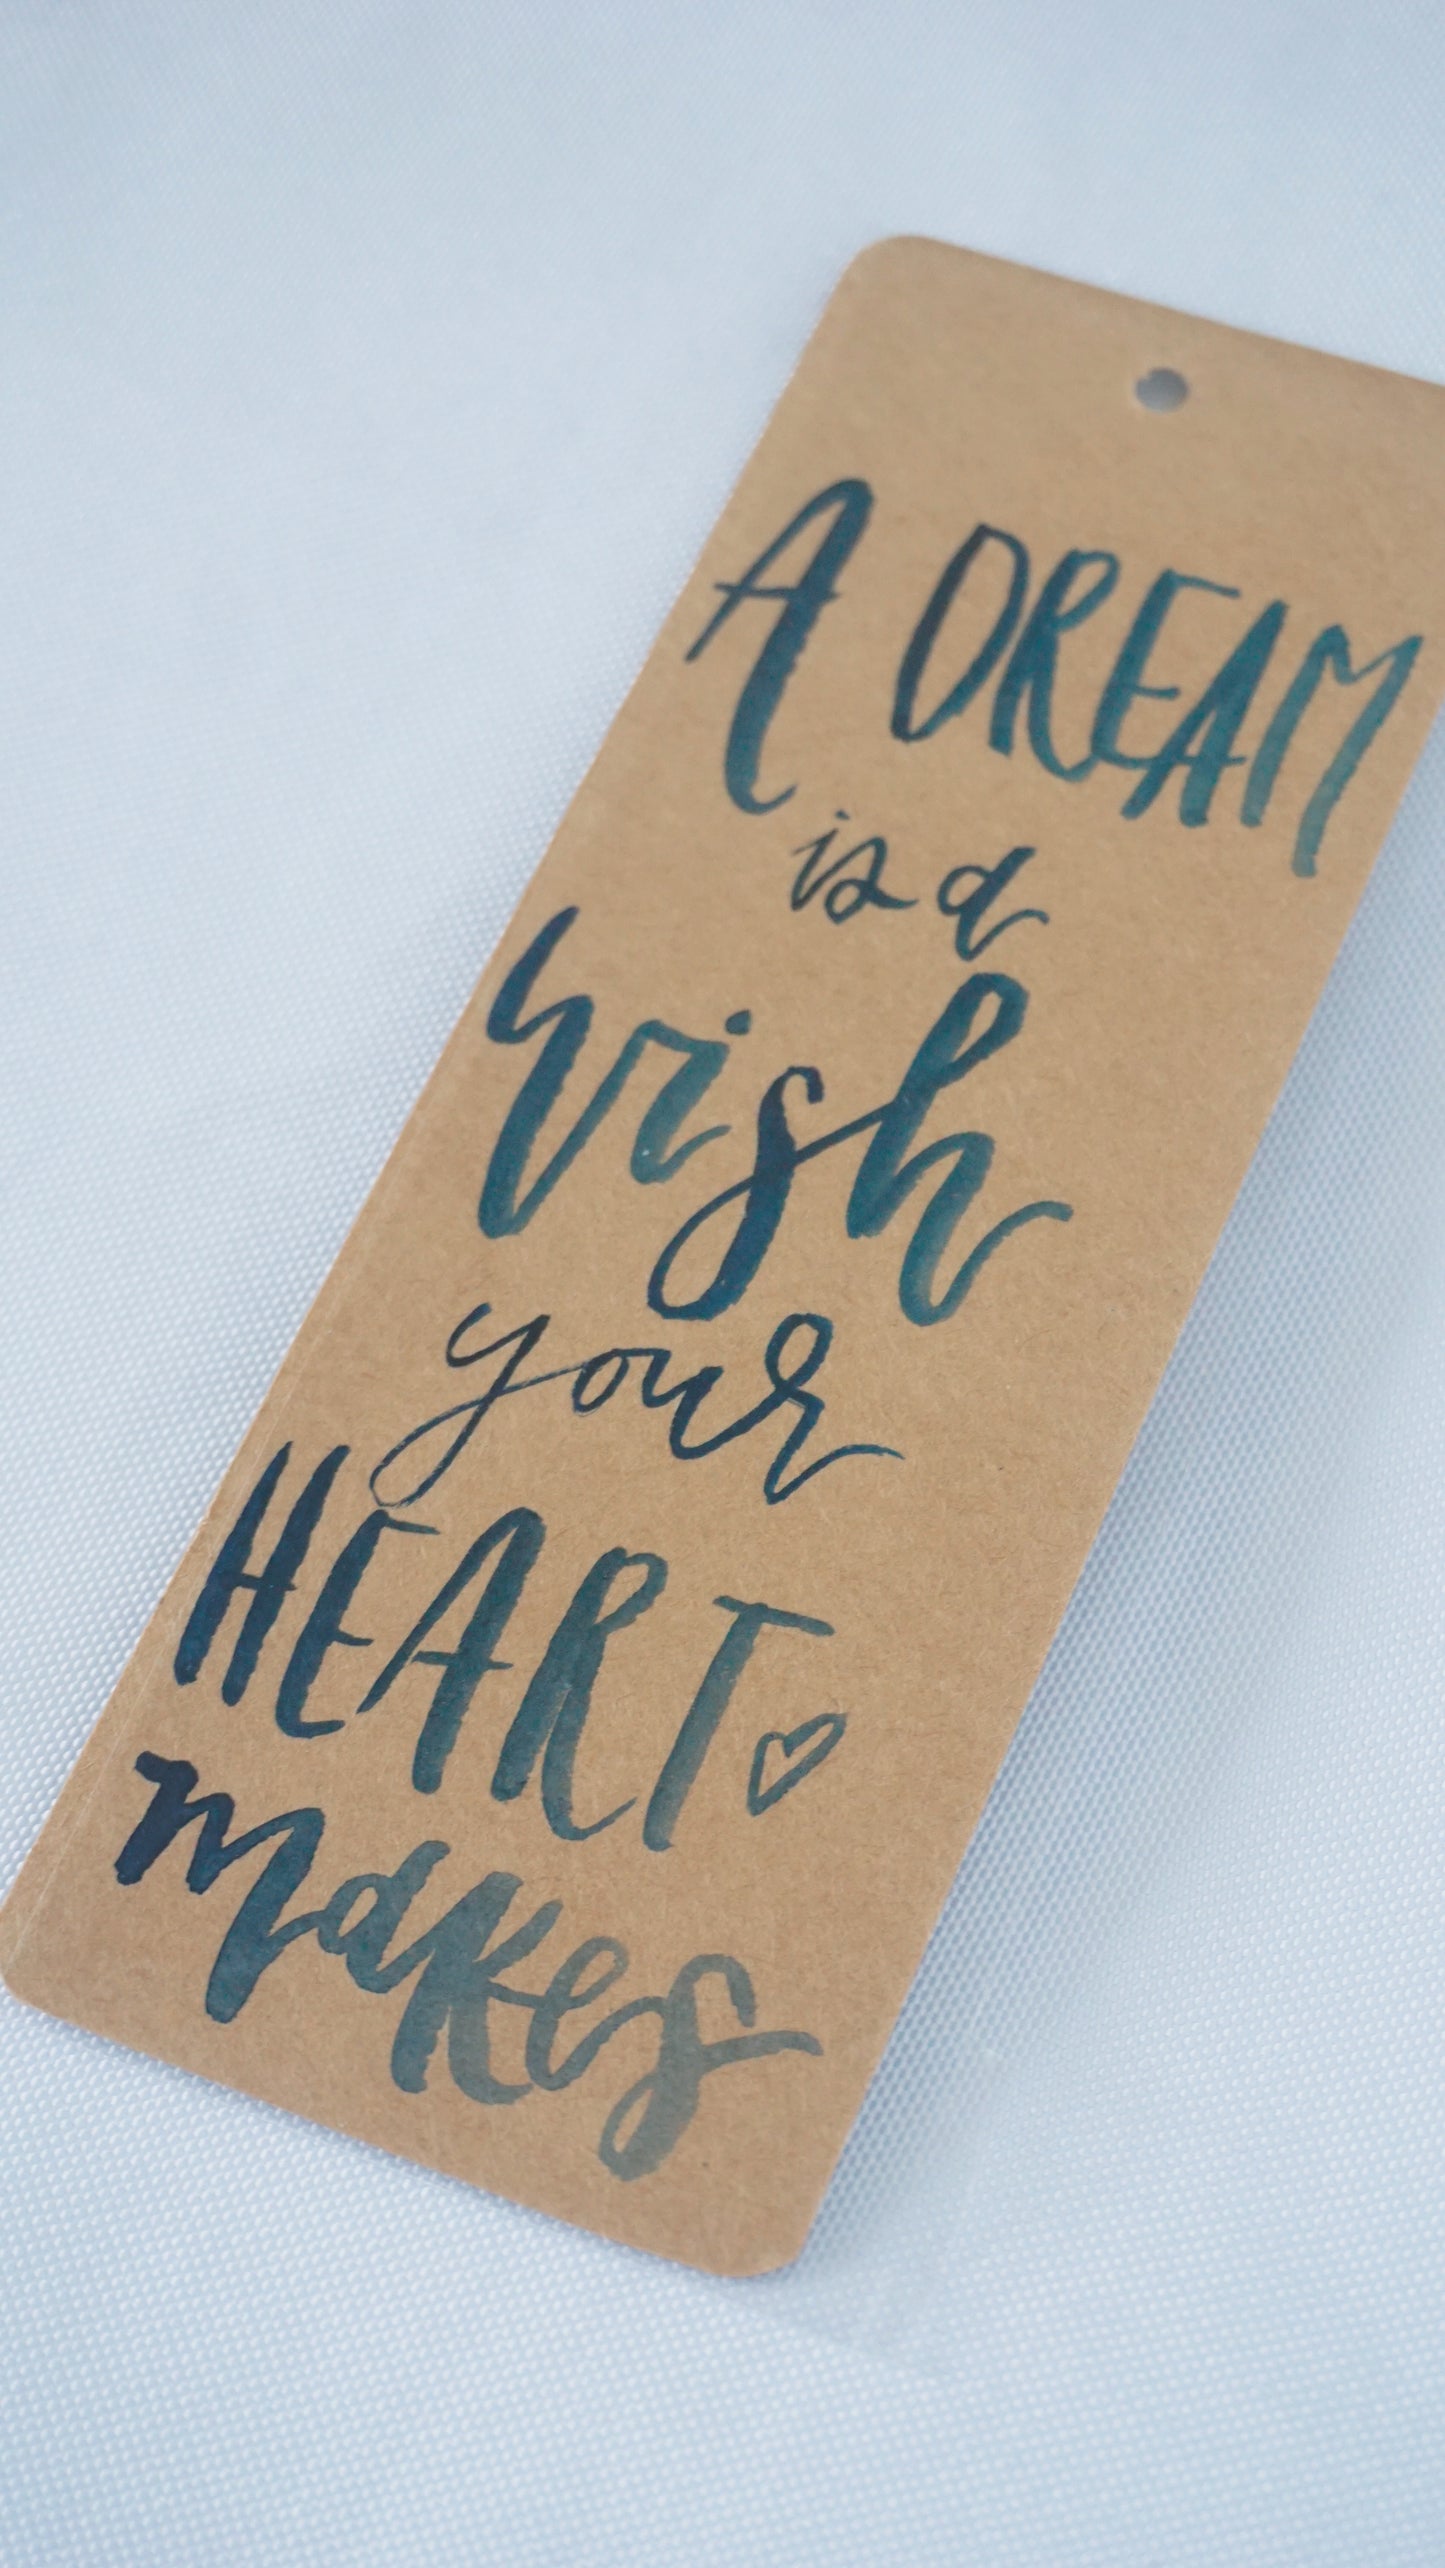 A DREAM
is a
wish
your
HEART
makes